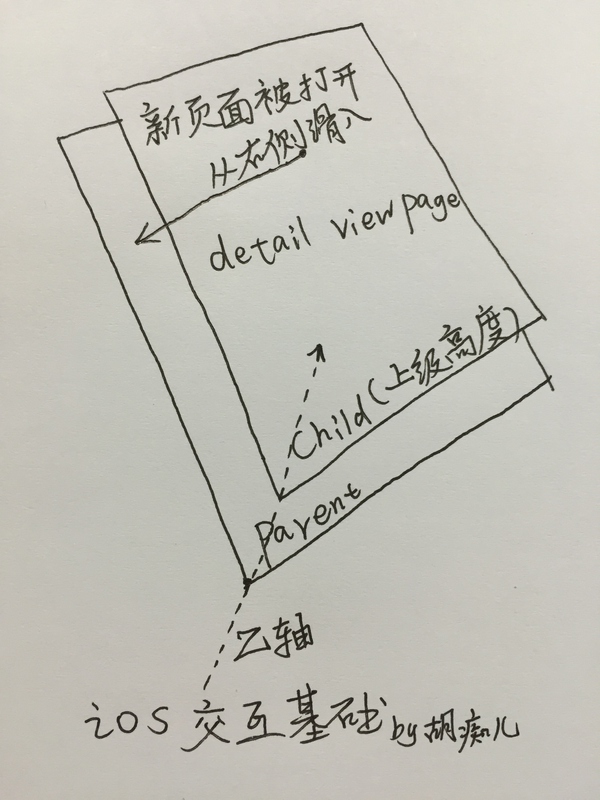 新页面被打开
从右侧滑入
detail view page
Child(上级高度)
Parent
Z轴
iOS 交互基础 by 胡痴儿